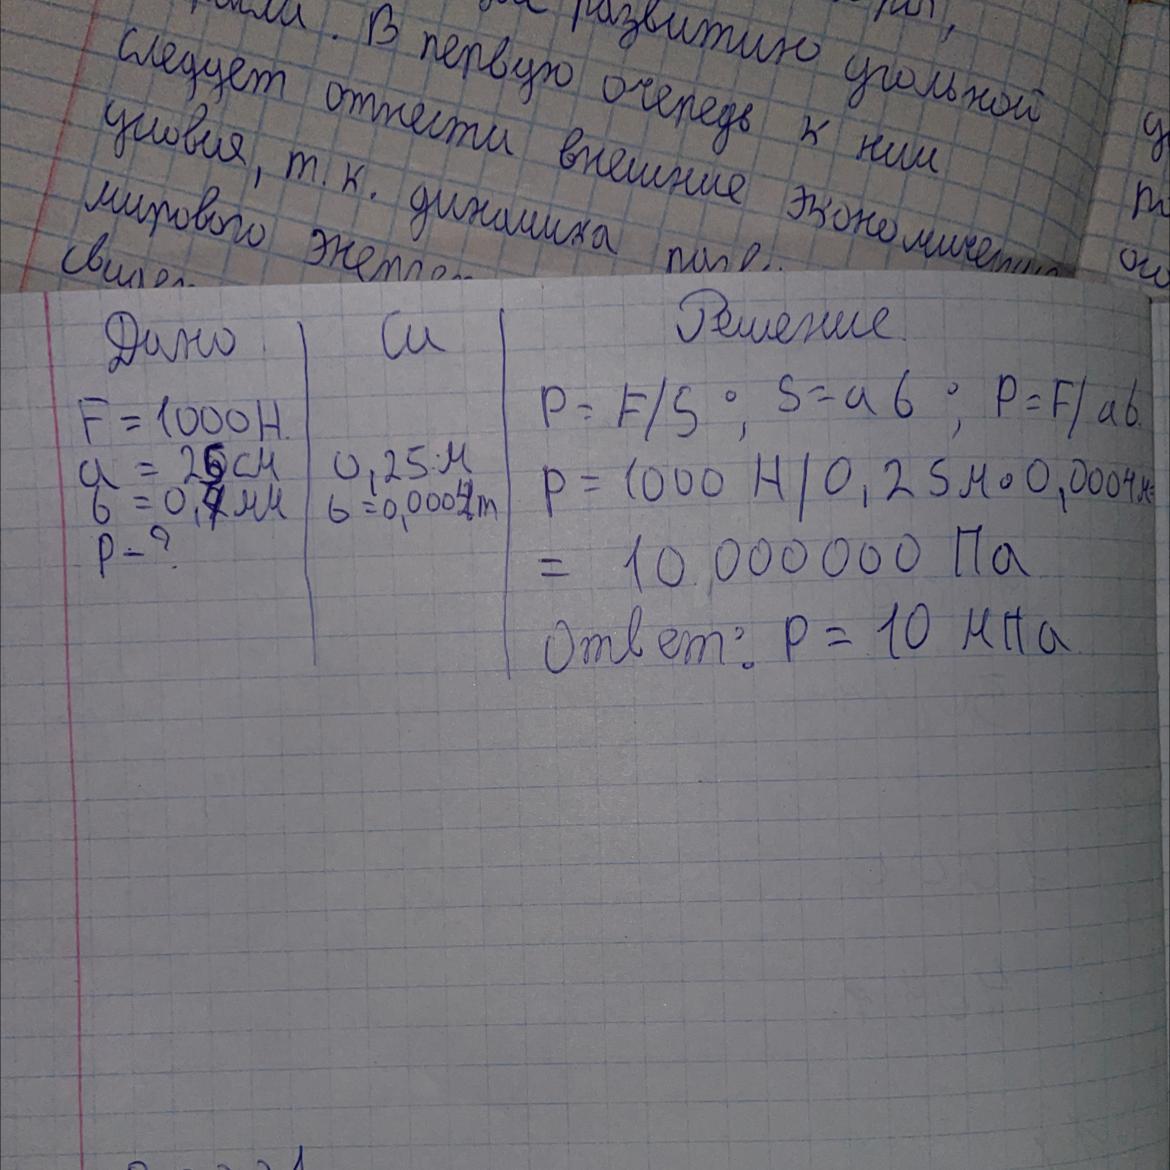 развитию угольной
. В первую очередь к ним
следует отнести внешние экономичес
условия, т.к. динамика
мирового
Дано
Си
Решение
F = 1000 Н.
a = 25 см
0,25 м
в = 0,4 мм
в = 0,0004 m
P = ?
P = F/S ; S = a в ; P = F/ aв.
P = 1000 Н / 0,25 м • 0,0004 м =
= 10 000000 Па
Ответ: P = 10 мПа